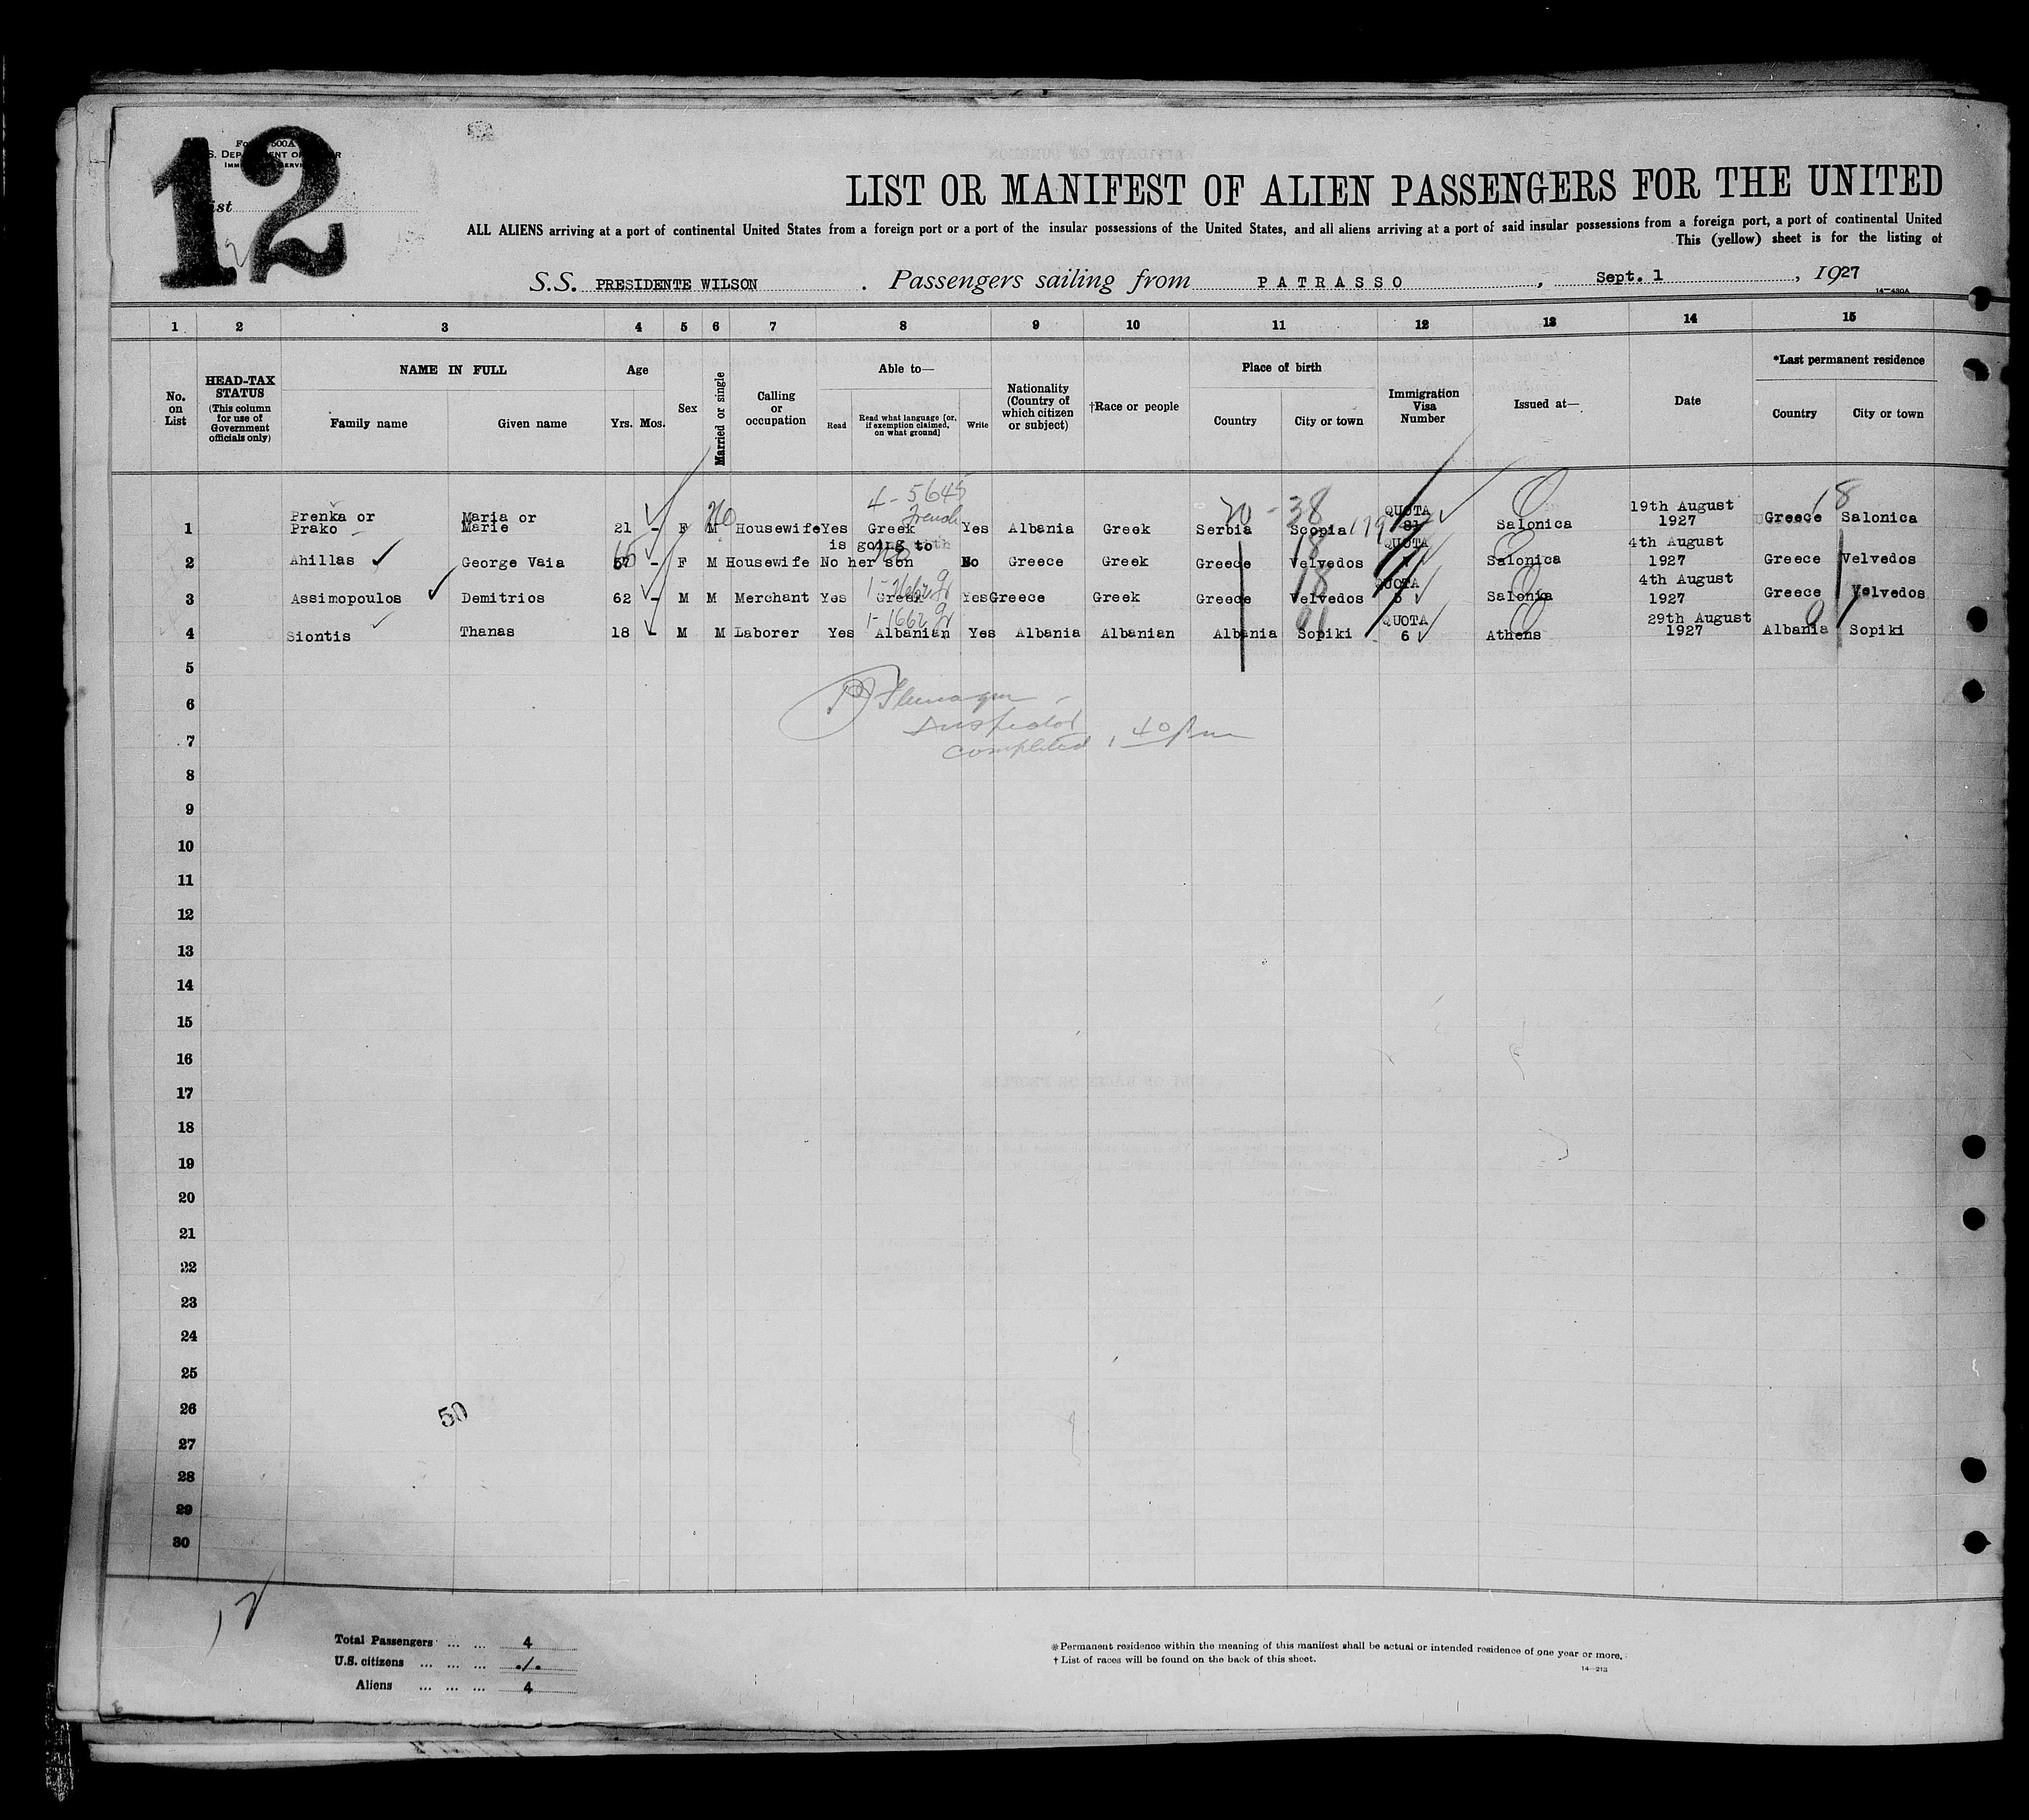 12
LIST OR MANIFEST OF ALIEN PASSENGERS FOR THE UNITED
ALL ALIENS arriving at a port of continental United States from a foreign port or a port of the insular possessions of the United States, and all aliens arriving at a port of said insular possessions from a foreign port, a port of continental United
This (yellow) sheet is for the listing of
S.S. PRESIDENTE WILSON . Passengers sailing from PATRASSO , Sept. 1 , 1927
14—430A
1 2 3 4 5 6 7 8 9 10 11 12 13 14 15
No. on List
HEAD-TAX STATUS (This column for use of Government officials only)
NAME IN FULL
Family name Given name
Age
Yrs. Mos.
Sex
Married or single
Calling or occupation
Able to—
Read Read what language [or, if exemption claimed, on what ground] Write
Nationality (Country of which citizen or subject)
†Race or people
Place of birth
Country City or town
Immigration Visa Number
Issued at—
Date
*Last permanent residence
Country City or town
4-5645 French 20-38 18
1 Prenka or Prako Maria or Marie 21 - F M Housewife Yes Greek Yes Albania Greek Serbia Scopia QUOTA 81 Salonica 19th August 1927 Greece Salonica
is going to
2 Ahillas George Vaia - F M Housewife No her son No Greece Greek Greece Velvedos QUOTA Salonica 4th August 1927 Greece Velvedos
3 Assimopoulos Demitrios 62 - M M Merchant Yes Greek Yes Greece Greek Greece Velvedos QUOTA Salonia 4th August 1927 Greece Velvedos
1-1662
4 Siontis Thanas 18 - M M Laborer Yes Albanian Yes Albania Albanian Albania Sopiki QUOTA 6 Athens 29th August 1927 Albania Sopiki
5
6
Inspector
7
completed 1 40 pm
8
9
10
11
12
13
14
15
16
17
18
19
20
21
22
23
24
25
26
50
27
28
29
30
12
Total Passengers ... ... 4
U.S. citizens ... ... ... ./.
Aliens ... ... ... 4
* Permanent residence within the meaning of this manifest shall be actual or intended residence of one year or more.
† List of races will be found on the back of this sheet.
14—213